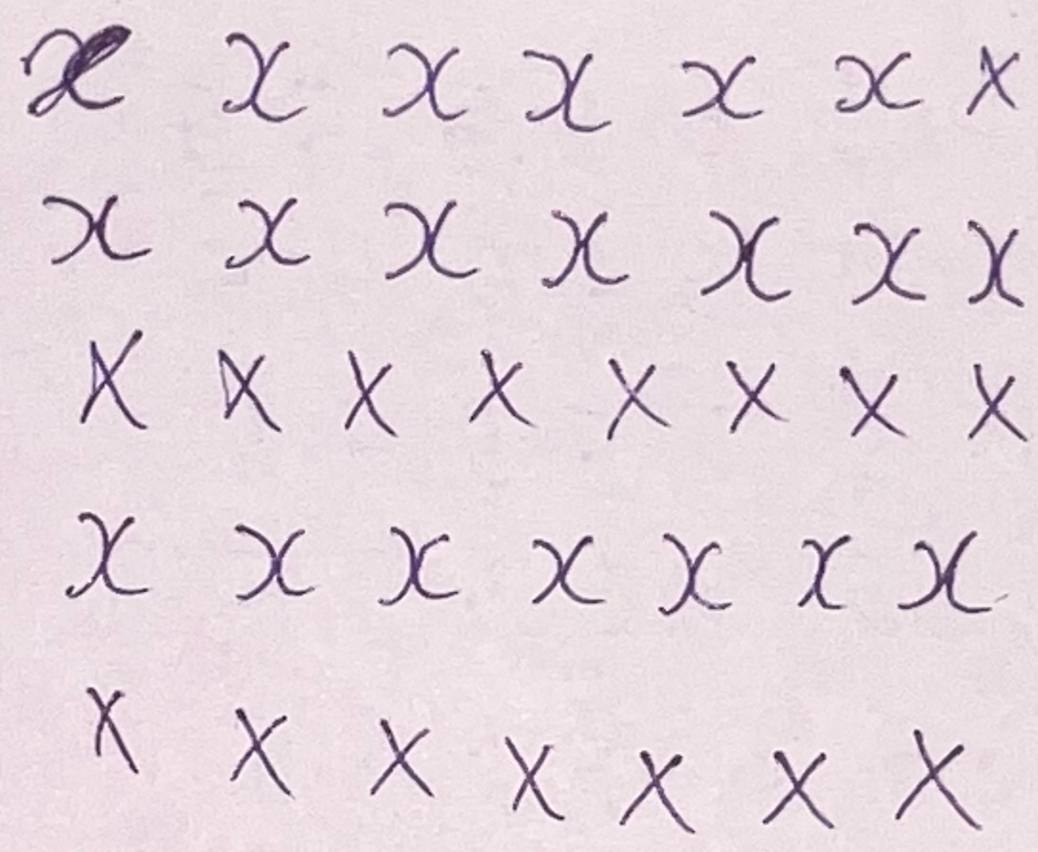 x x x x x x x
x x x x x x x
x x x x x x x x
x x x x x x x
x x x x x x x